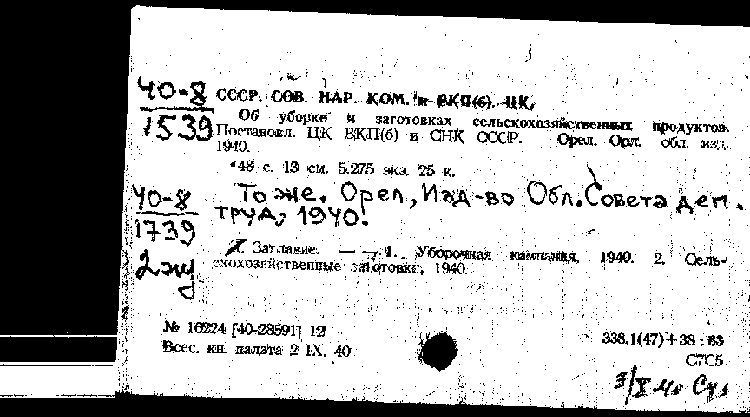 40-8
1539
СССР. СОВ. НАР. КОМ. и ВКП(б). ЦК.
Об уборке и заготовках сельскохозяйственных продуктов.
Постановл. ЦК ВКП(б) и СНК СССР. Орел. Орл. обл. изд.
1940.
48 с. 13 см. 5.275 экз. 25 к.
40-8
1739
2 экз
То же. Орел, Изд-во Обл. Совета деп.
труд., 1940.
Заглавие. — 1. Уборочная кампания, 1940. 2. Сель-
скохозяйственные заготовки, 1940.
№ 16224 [40-28591] 12
Всес. кн. палата 2 IX. 40
338.1(47)+38 : 63
С7С5
3/X 40